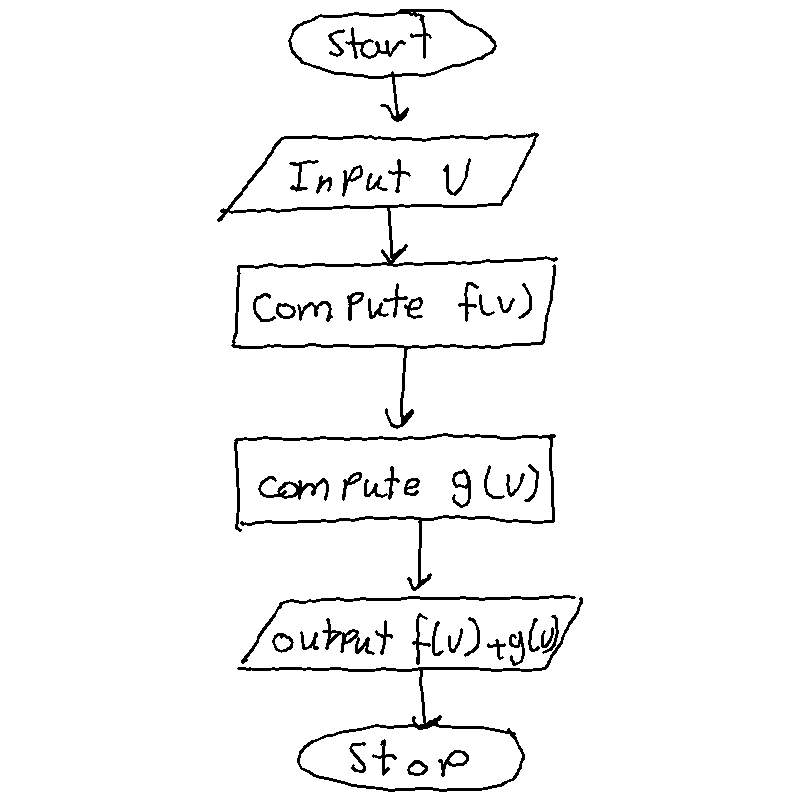 Start
Input V
Compute f(v)
Compute g(v)
output f(v)+g(v)
Stop